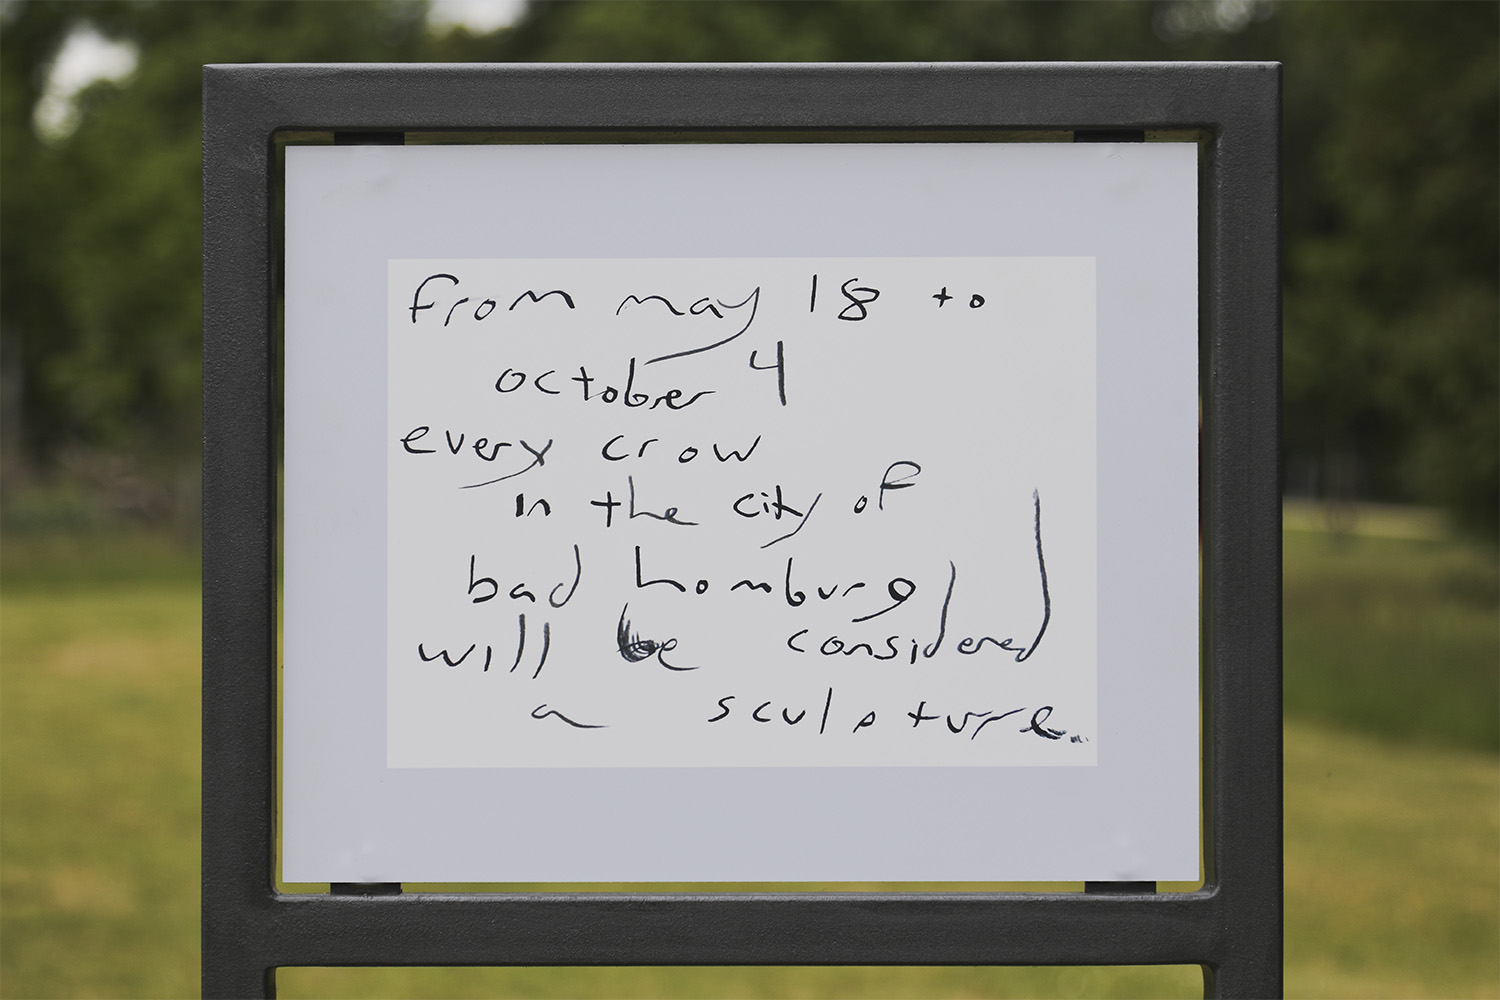 from may 18 to
october 4
every crow
in the city of
bad homburg
will be considered
a sculpture..